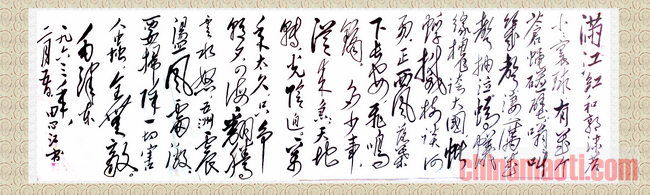 满江红 和郭沫若
小小寰球 有几个
苍蝇碰壁 嗡嗡叫
几声凄厉 几
声抽泣 蚂蚁
缘槐夸大国 蚍
蜉撼树谈何
易 正西风落叶
下长安 飞鸣
镝 多少事
从来急 天地
转 光阴迫 一万
年太久 只争
朝夕 四海翻腾
云水怒 五洲震
荡风雷激
要扫除一切害
人虫 全无敌
毛泽东
一九六三年